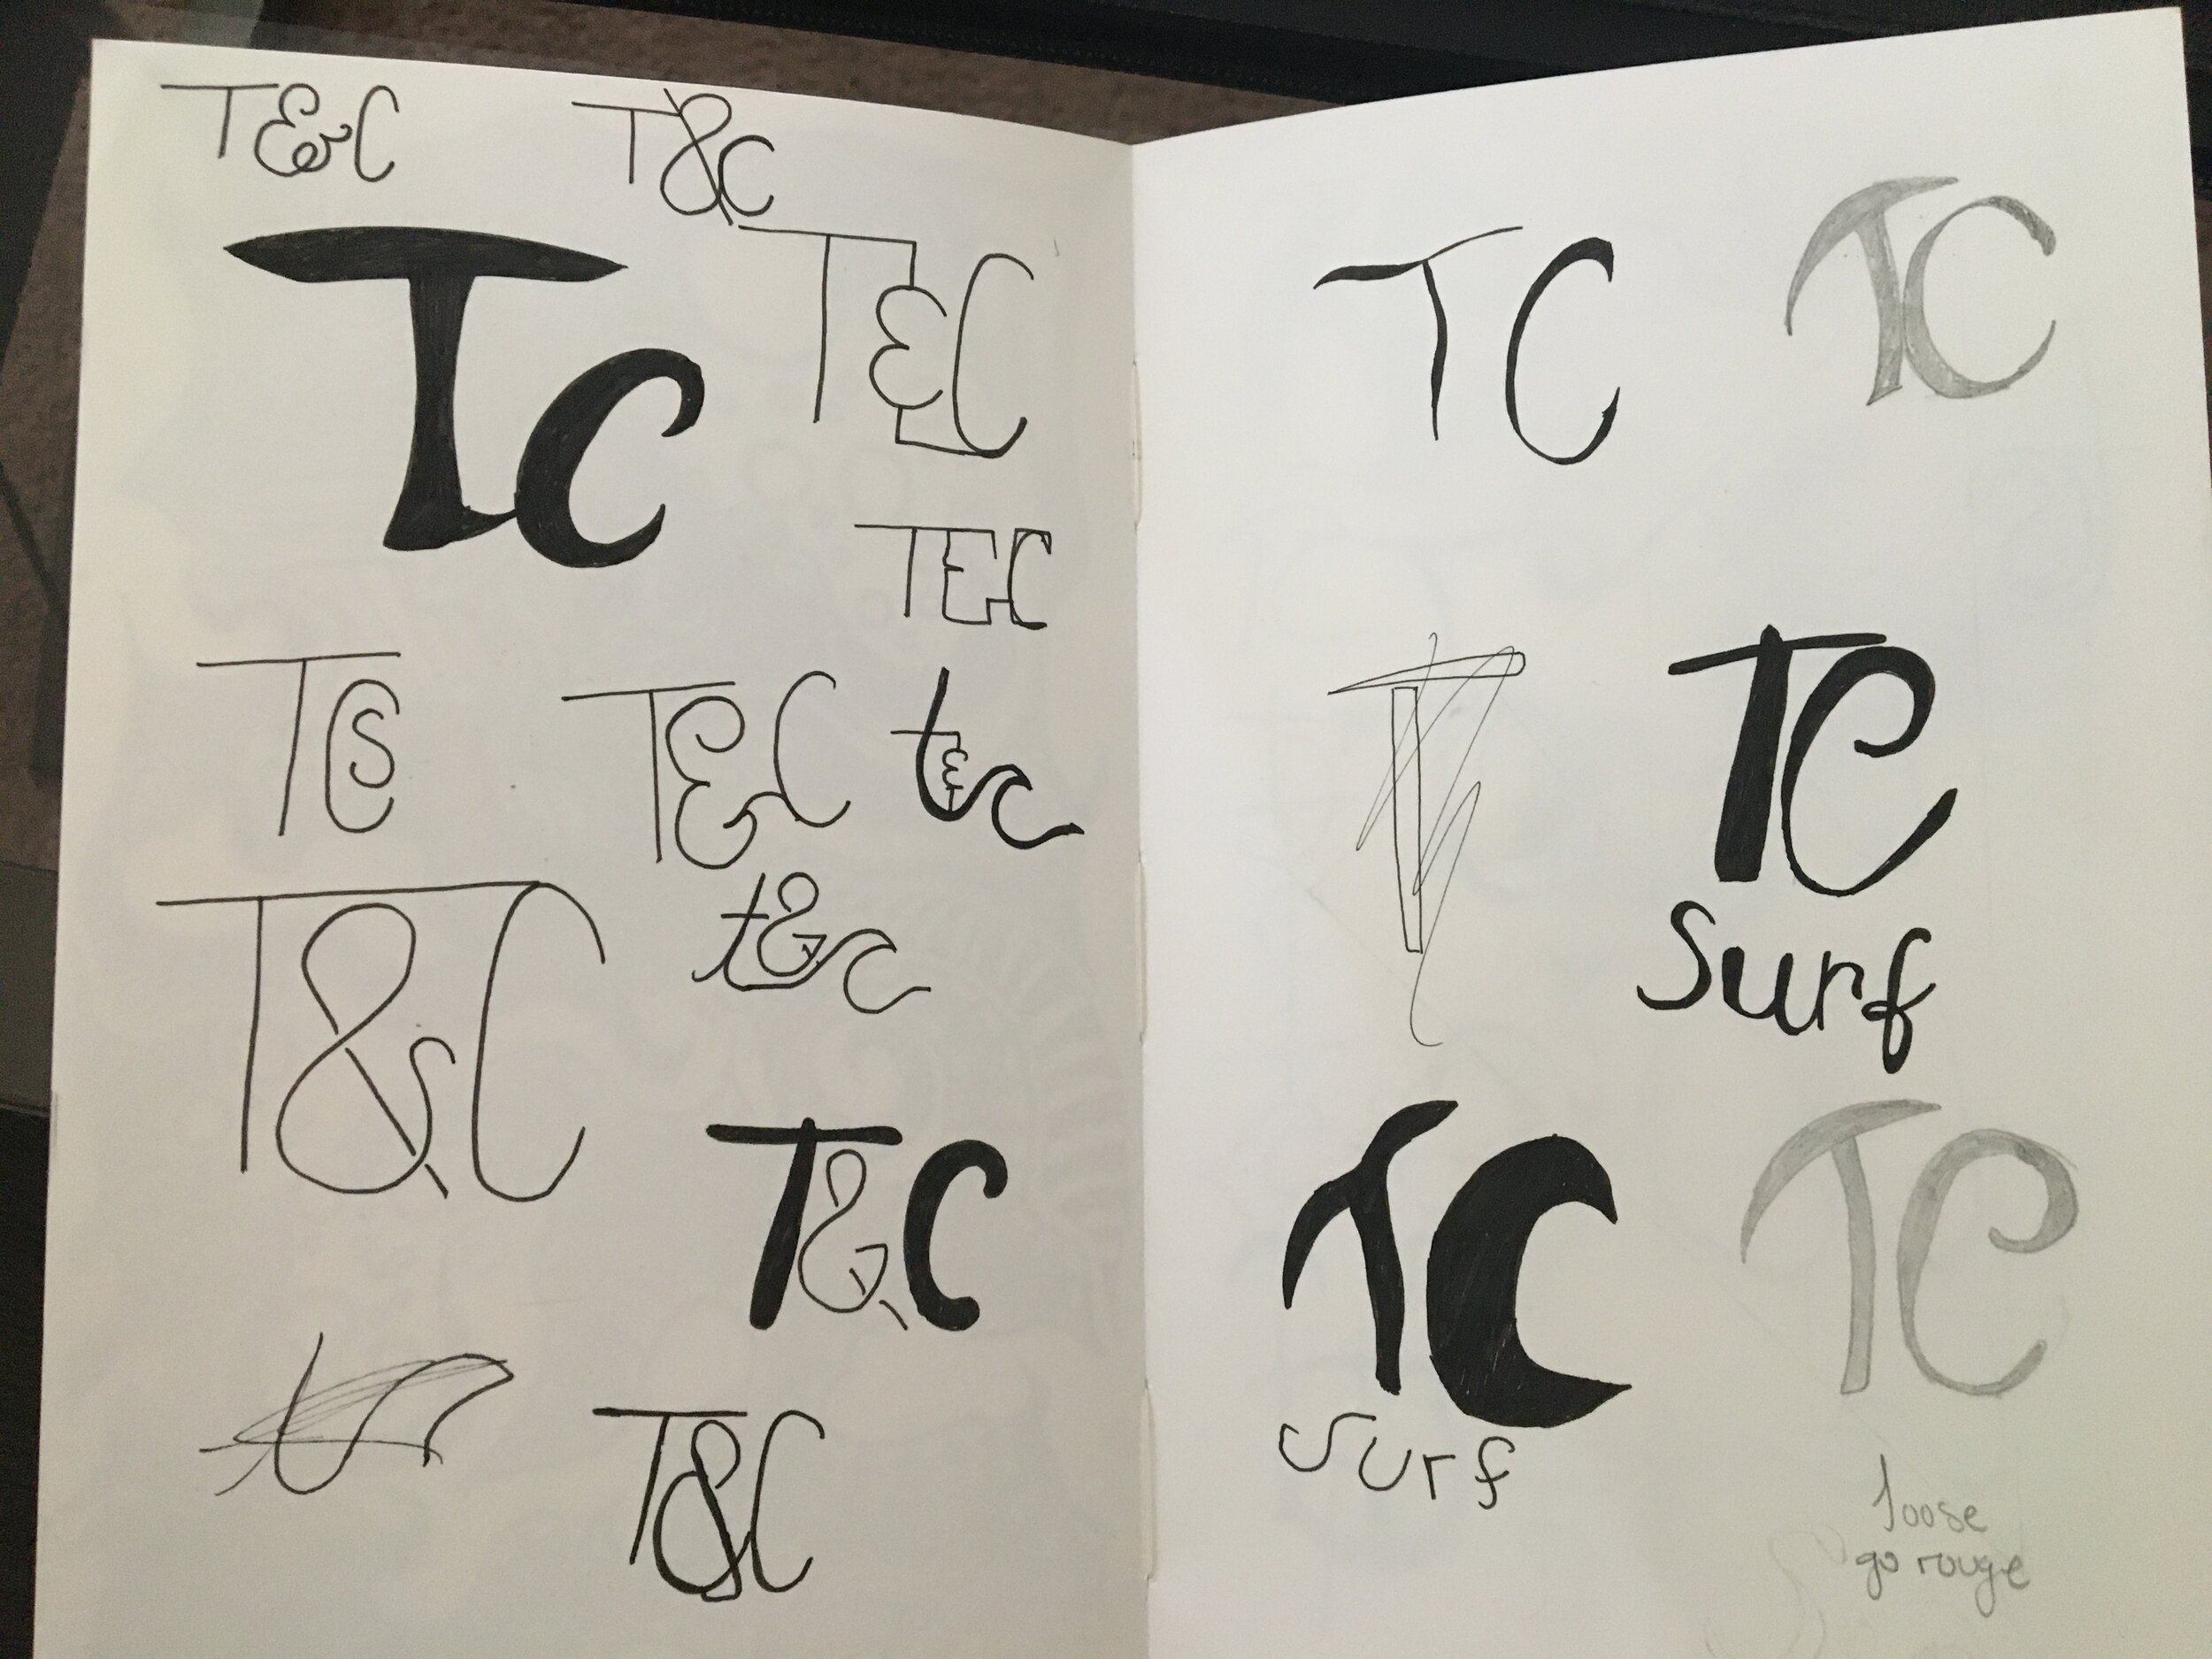 T&C
T&C
TC
T&C
T&C
TC
T&C
t&c
T&C
t&c
T&C
T&C
TC
TC
T
TC
Surf
TC
Surf
TC
loose
go rouge